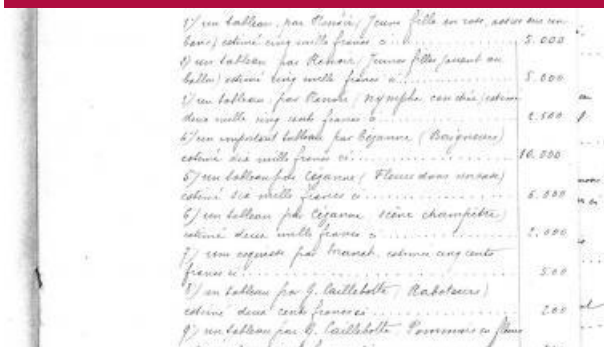 1°/ un tableau, par Renoir, (Jeune fille en rose, assise sur un
banc) estimé cinq mille francs ci 5.000
2/ un tableau par Renoir, (Jeunes filles jouant au
ballon) estimé cinq mille francs ci 5.000
3/ un tableau, par Renoir, (Nymphe couchée) estimé
deux mille cinq cents francs ci 2.500
4°/ un important tableau par Cézanne (Baigneurs)
estimé dix mille francs ci 10.000
5/ un tableau par Cézanne (Fleurs dans un vase)
estimé six mille francs ci 6.000
6/ un tableau par Cézanne scène champêtre)
estimé deux mille francs ci 2.000
7/ une esquisse par Manet, estimée cinq cents
francs ci 500
8/ un tableau par G. Caillebotte (Raboteurs)
estimé deux cents francs ci 200
9°/ un tableau par G. Caillebotte Pommiers en fleurs